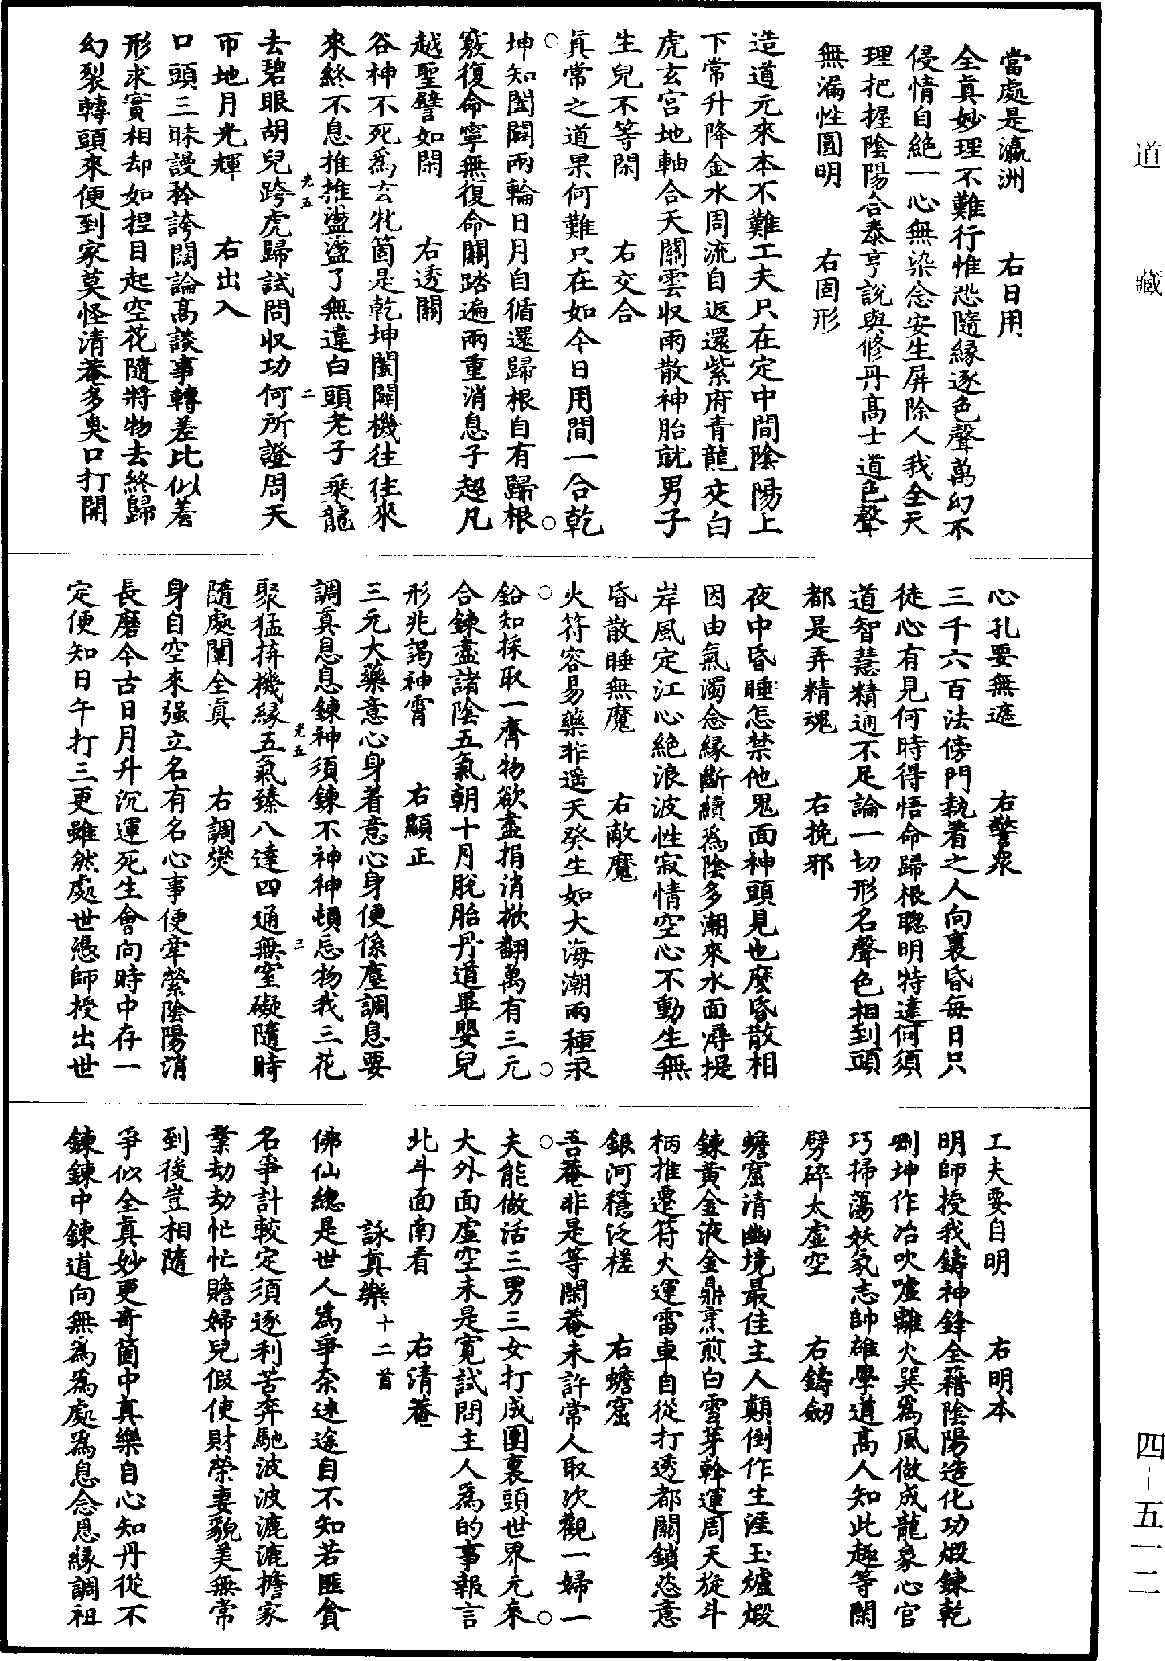 道藏
當處是瀛洲　右日用
全真妙理不難行惟恐隨緣逐色聲萬幻不
侵情自絕一心無染念安生屏除人我全天
理把握陰陽合泰亨說與修丹高士道色聲
無漏性圓明　右固形
造道元來本不難工夫只在定中間陰陽上
下常升降金水周流自返還紫府青龍交白
虎玄宮地軸合天關雲収雨散神胎就男子
生兒不等閑　右交合
真常之道果何難只在如今日用間一合乾
坤知闔闢兩輪日月自循還歸根自有歸根
竅復命寧無復命關踏遍兩重消息子超凡
越聖譬如閑　右透關
谷神不死為玄牝箇是乾坤闔闢機往往來
來終不息推推盪盪了無違白頭老子乘龍
去碧眼胡兒跨虎歸試問収功何所證周天
帀地月光輝　右出入
口頭三昧謾矜誇闊論高談事轉差比似著
形求實相却如捏目起空花隨將物去終歸
幻裂轉頭來便到家莫怪清菴多臭口打開
光五　二
心孔要無遮　右警衆
三千六百法傍門執著之人向裏昏每日只
徒心有見何時得悟命歸根聰明特達何須
道智慧精通不足論一切形名聲色相到頭
都是弄精魂　右挽邪
夜中昏睡怎禁他鬼面神頭見也麼昏散相
因由氣濁念緣斷續為陰多潮來水面𣸣堤
岸風定江心絕浪波性寂情空心不動生無
昏散睡無魔　右敵魔
火符容易藥非遥天癸生如大海潮兩種汞
鉛知採取一齊物欲盡捐消掀翻萬有三元
合鍊盡諸陰五氣朝十月脫胎丹道畢嬰兒
形兆謁神霄　右顯正
三元大藥意心身著意心身便係塵調息要
調真息息鍊神須鍊不神神頓忘物我三花
聚猛拚機緣五氣臻八達四通無窒礙隨時
隨處闡全真　右調燮
身自空來强立名有名心事便牽縈陰陽消
長磨今古日月升沉運死生會向時中存一
定便知日午打三更雖然處世憑師授出世
光五　三
工夫要自明　右明本
明師授我鑄神鋒全藉陰陽造化功煅鍊乾
剛坤作冶吹噓離火巽為風做成龍象心官
巧掃蕩妖氛志帥雄學道高人知此趣等閑
劈碎太虛空　右鑄劒
蟾窟清幽境最佳主人顛倒作生涯玉爐煅
鍊黃金液金鼎烹煎白雪芽斡運周天旋斗
柄推遷符火運雷車自從打透都關鎖恣意
銀河穩泛槎　右蟾窟
吾菴非是等閑菴未許常人取次觀一婦一
夫能做活三男三女打成團裏頭世界元來
大外面虛空未是寬試問主人為的事報言
北斗面南看　右清菴
詠真樂十二首
佛仙總是世人為爭柰迷途自不知若匪貪
名爭計較定須逐利苦奔馳波波漉漉擔家
業劫劫忙忙贍婦兒假使財榮妻貌美無常
到後豈相隨
爭似全真妙更奇箇中真樂自心知丹從不
鍊鍊中鍊道向無為為處為息念息緣調祖
四－五一二